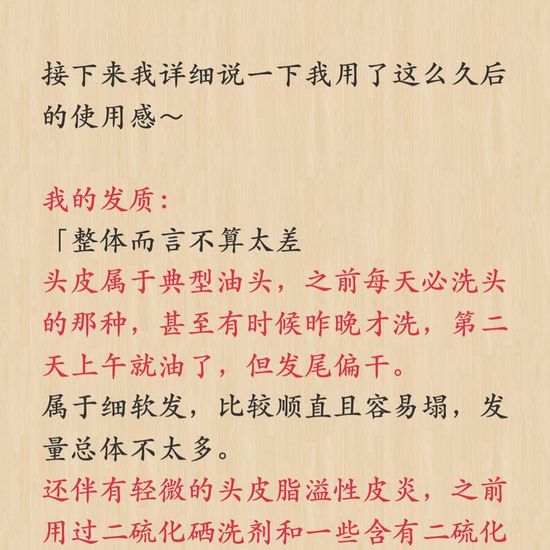 接下来我详细说一下我用了这么久后
的使用感～
我的发质：
「整体而言不算太差
头皮属于典型油头，之前每天必洗头
的那种，甚至有时候昨晚才洗，第二
天上午就油了，但发尾偏干。
属于细软发，比较顺直且容易塌，发
量总体不太多。
还伴有轻微的头皮脂溢性皮炎，之前
用过二硫化硒洗剂和一些含有二硫化